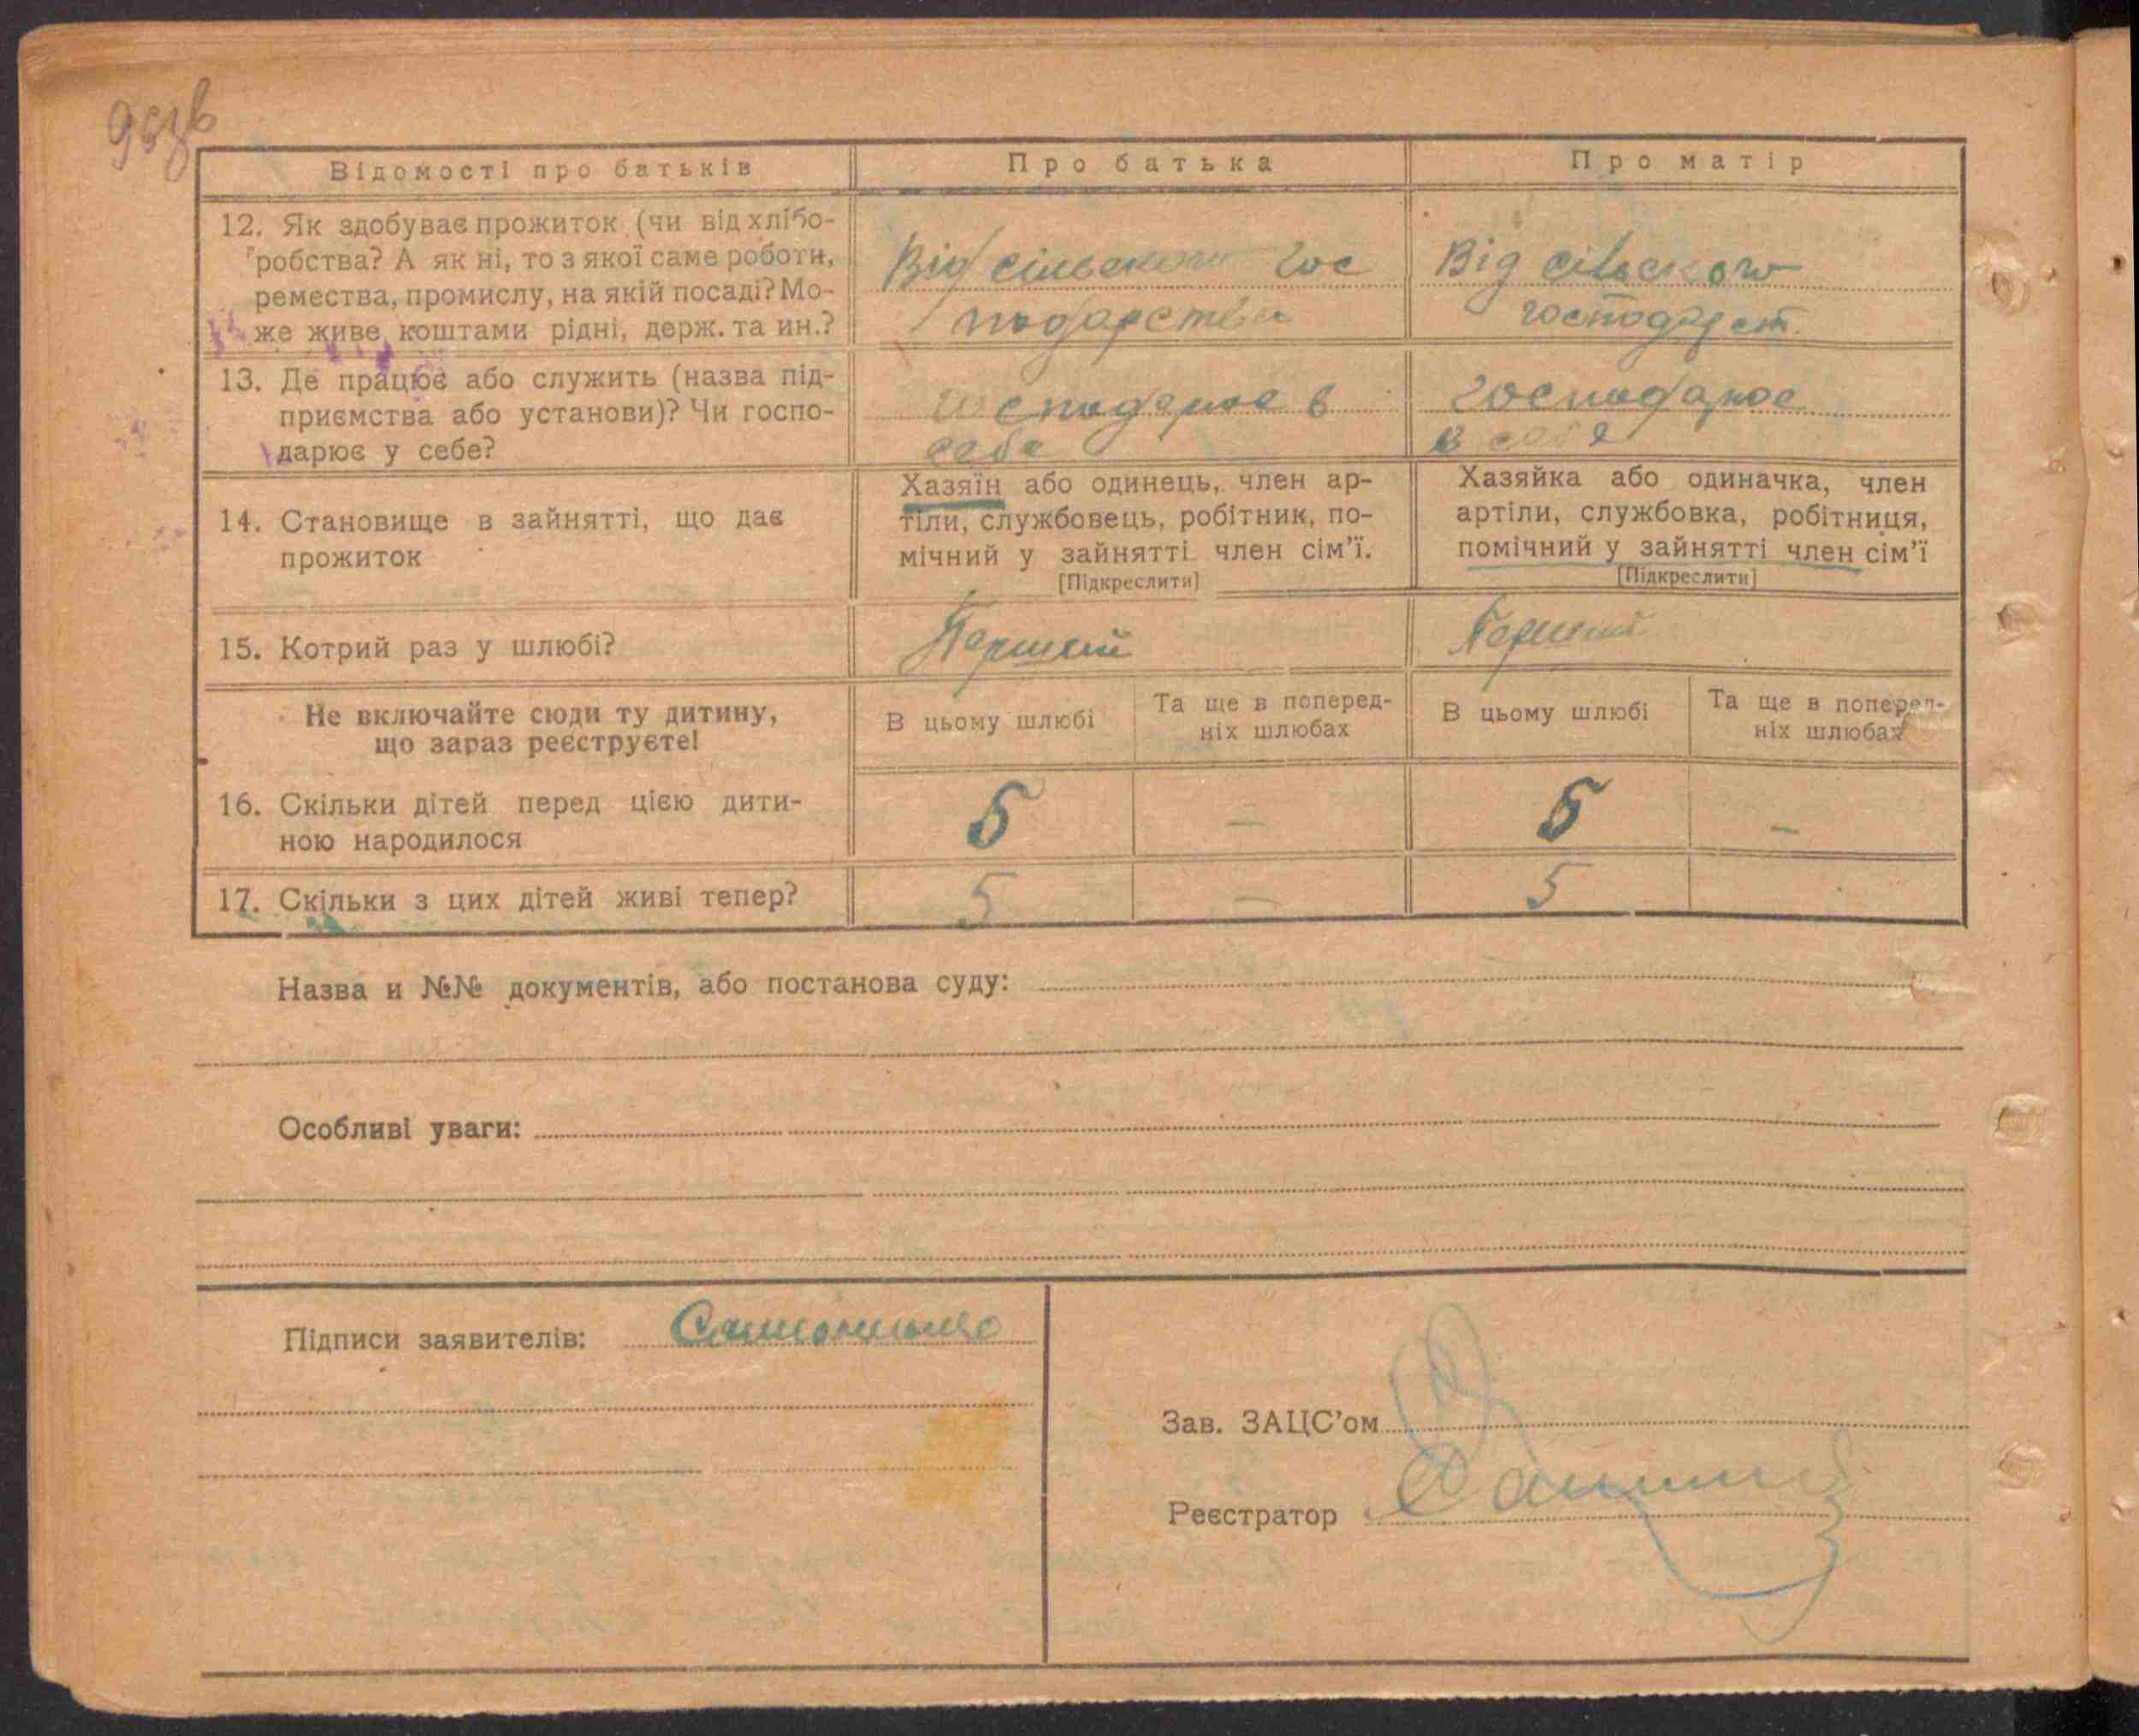 Відомості про батьків
Про батька
Про матір
12. Як здобуває прожиток (чи від хлібо-
робства? А як ні, то з якої саме роботи,
ремества, промислу, на якій посаді? Мо-
же живе коштами рідні, держ. та ин.?
Від сільського гос
подарства
Від сільского
господарст.
13. Де працює або служить (назва під-
приємства або установи)? Чи госпо-
дарює у себе?
господарює в
себе
господарює
в себе
14. Становище в зайнятті, що дає
прожиток
Хазяїн або одинець, член ар-
тіли, службовець, робітник, по-
мічний у зайнятті член сім'ї.
[Підкреслити]
Хазяйка або одиначка, член
артіли, службовка, робітниця,
помічний у зайнятті член сім'ї
[Підкреслити]
15. Котрий раз у шлюбі?
Перший
Перший
Не включайте сюди ту дитину,
що зараз реєструєте!
В цьому шлюбі
Та ще в поперед-
ніх шлюбах
В цьому шлюбі
Та ще в поперед-
ніх шлюбах
16. Скільки дітей перед цією дити-
ною народилося
5
—
5
—
17. Скільки з цих дітей живі тепер?
5
—
5
Назва и №№ документів, або постанова суду:
Особливі уваги:
Підписи заявителів:
Зав. ЗАЦС'ом
Реєстратор